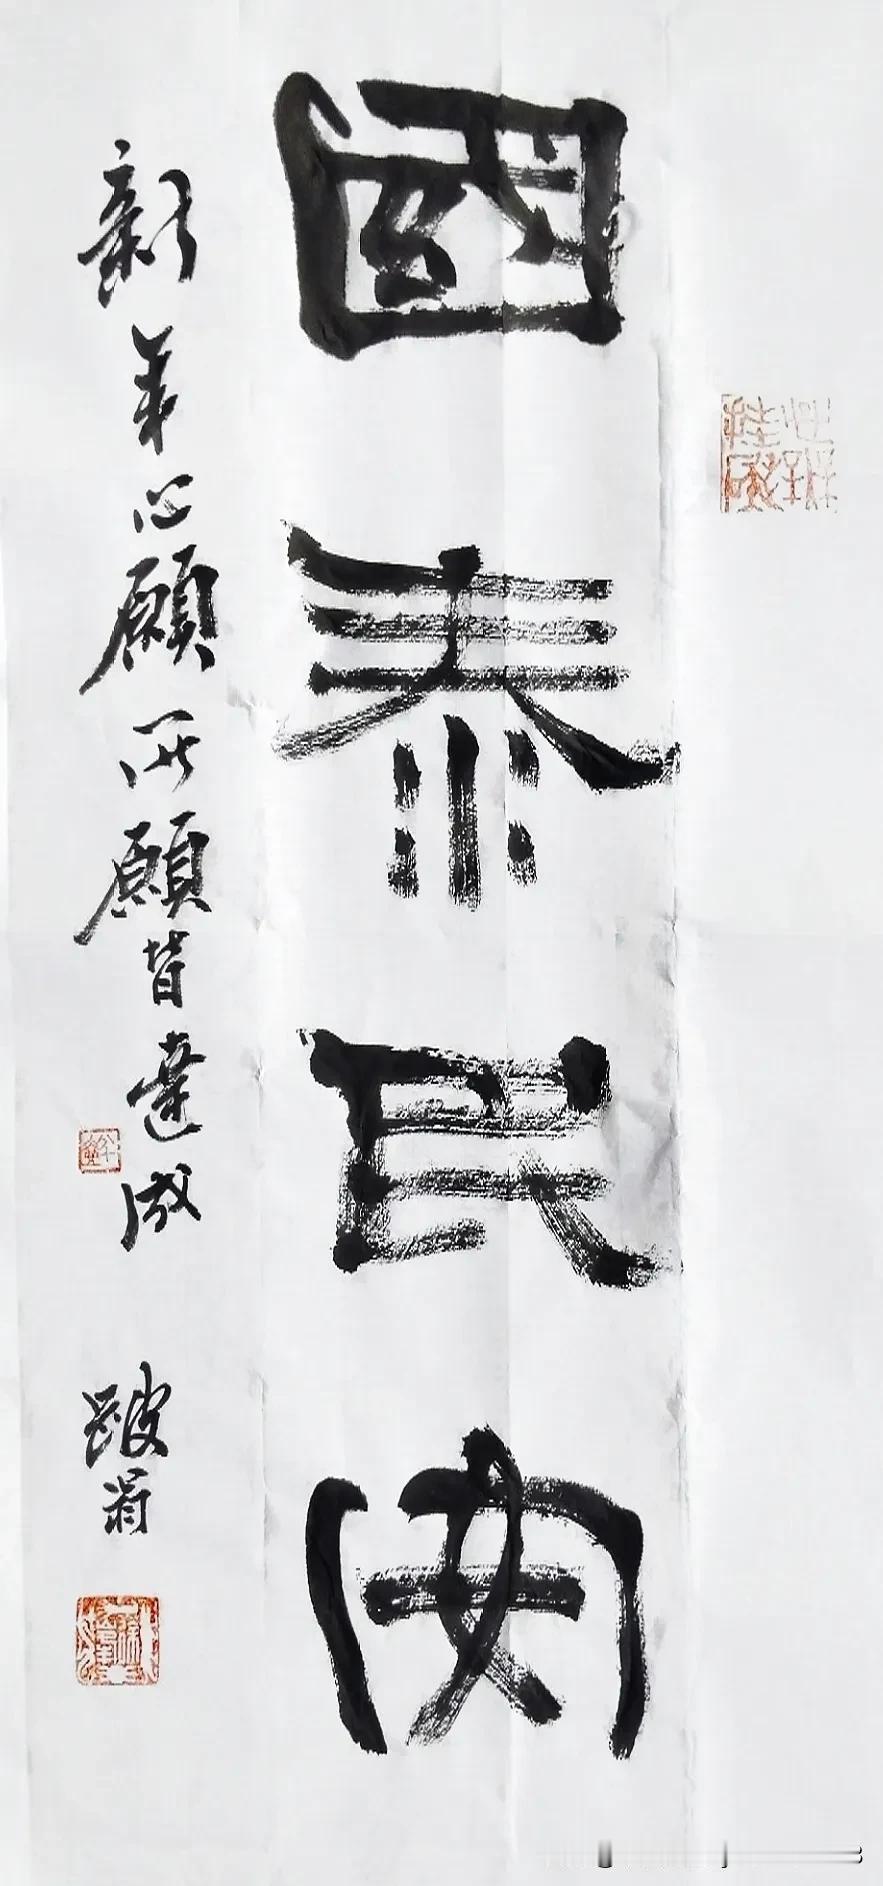 國泰民安
新年心願所願皆達成
跛翁